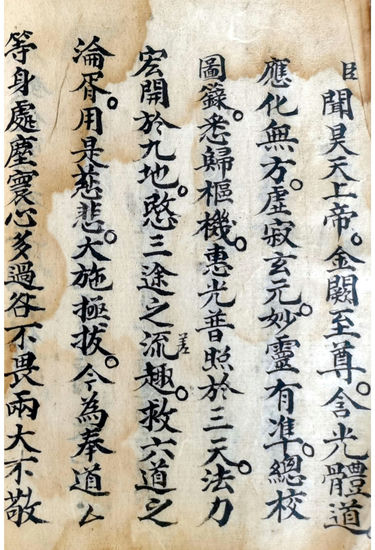 臣聞昊天上帝。金闕至尊。含光體道
應化無方。虛寂玄元。妙靈有準。總校
圖籙。悉歸樞機。惠光普照於三天。法力
宏開於九地。愍三途之流趣。救六道之
差
淪胥。用是慈悲。大施拯拔。今為奉道厶
等身處塵寰心多過咎不畏兩大不敬